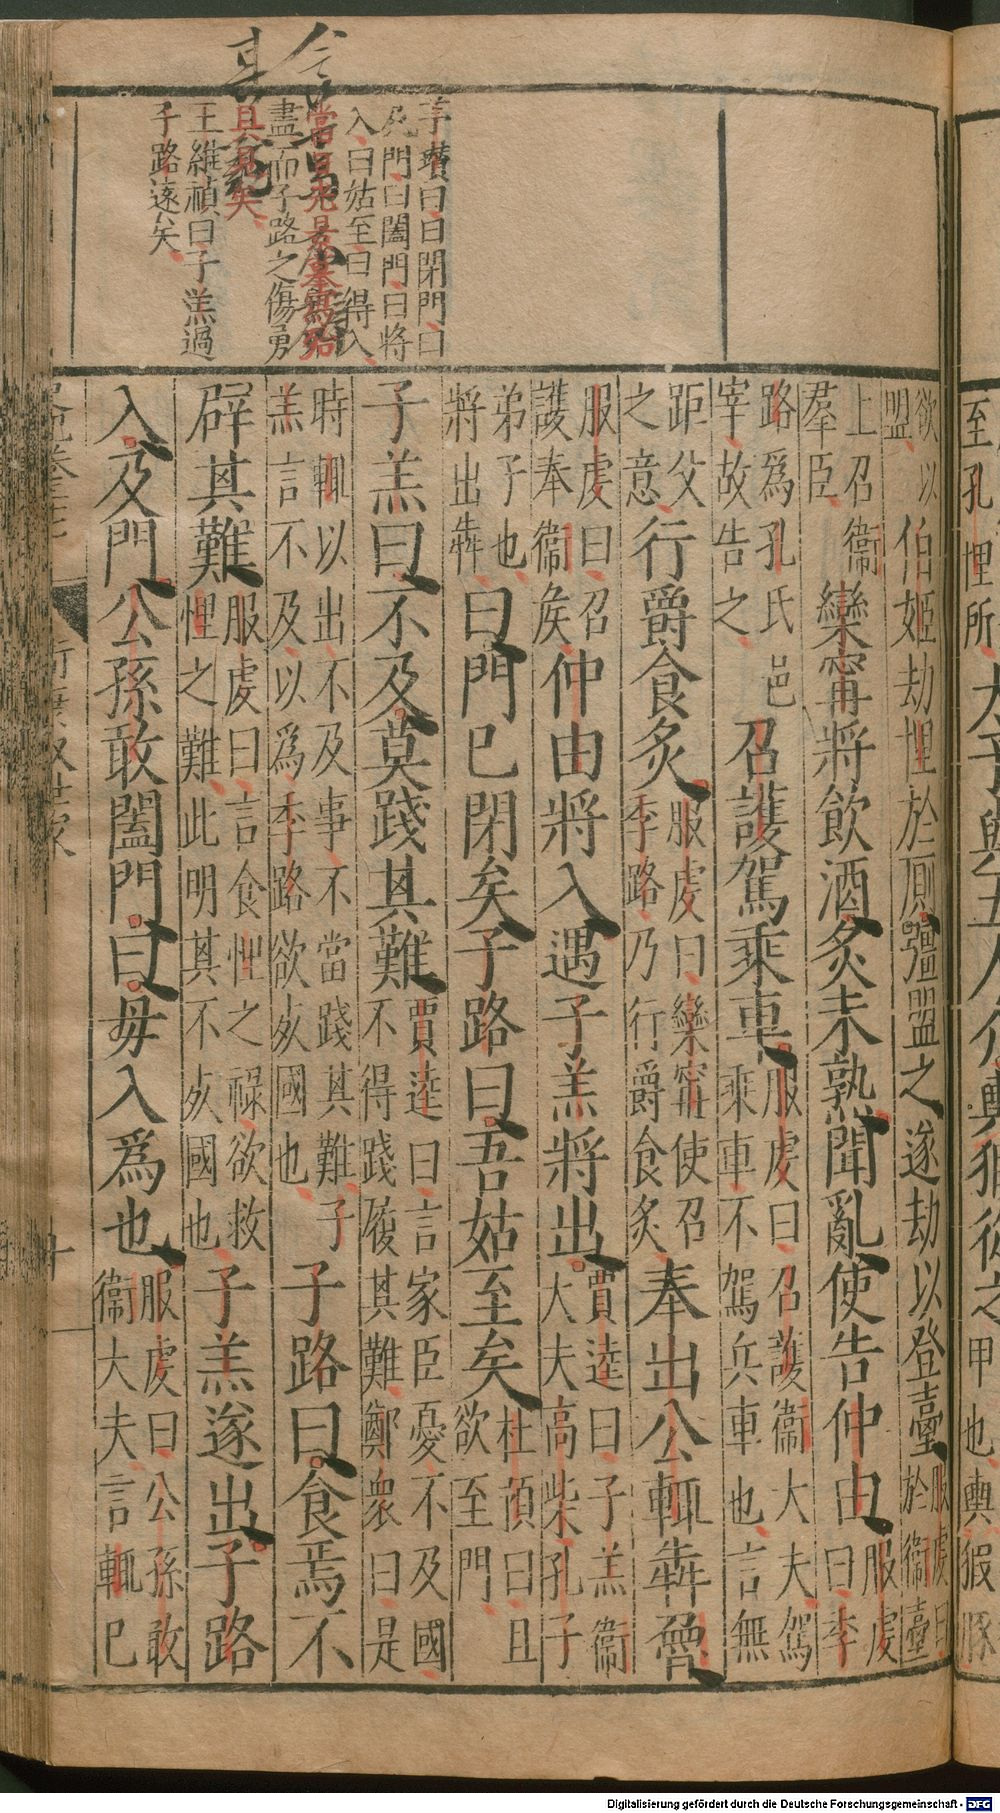 羊瓚曰曰閉門曰
死門曰闔門曰將
入曰姑至曰得入
當日光景摹寫殆
盡而子路之傷勇
具見矣
王維禎曰子羔過
子路遠矣
至孔悝所太子與五人介輿猳從之甲也輿猳豚
欲以盟伯姬劫悝於厠彊盟之遂劫以登臺服虔曰於衞臺
上召衞羣臣欒甯將飲酒炙未熟聞亂使告仲由服虔曰季
路爲孔氏邑宰故告之召護駕乘車服虔曰召護衞大夫駕乘車不駕兵車也言無
距父之意行爵食炙服虔曰欒甯使召季路乃行爵食炙奉出公輒犇魯
服虔曰召護奉衞矦仲由將入遇子羔將出賈逵曰子羔衞大夫高柴孔子
弟子也將出犇曰門已閉矣子路曰吾姑至矣杜預曰且欲至門
子羔曰不及莫踐其難賈逵曰言家臣憂不及國不得踐履其難鄭衆曰是
時輒以出不及事不當踐其難子羔言不及以爲季路欲死國也子路曰食焉不
辟其難服虔曰言食悝之祿欲救悝之難此明其不死國也子羔遂出子路
入及門公孫敢闔門曰毋入爲也服虔曰公孫敢衞大夫言輒已
Digitalisierung gefördert durch die Deutsche Forschungsgemeinschaft - DFG